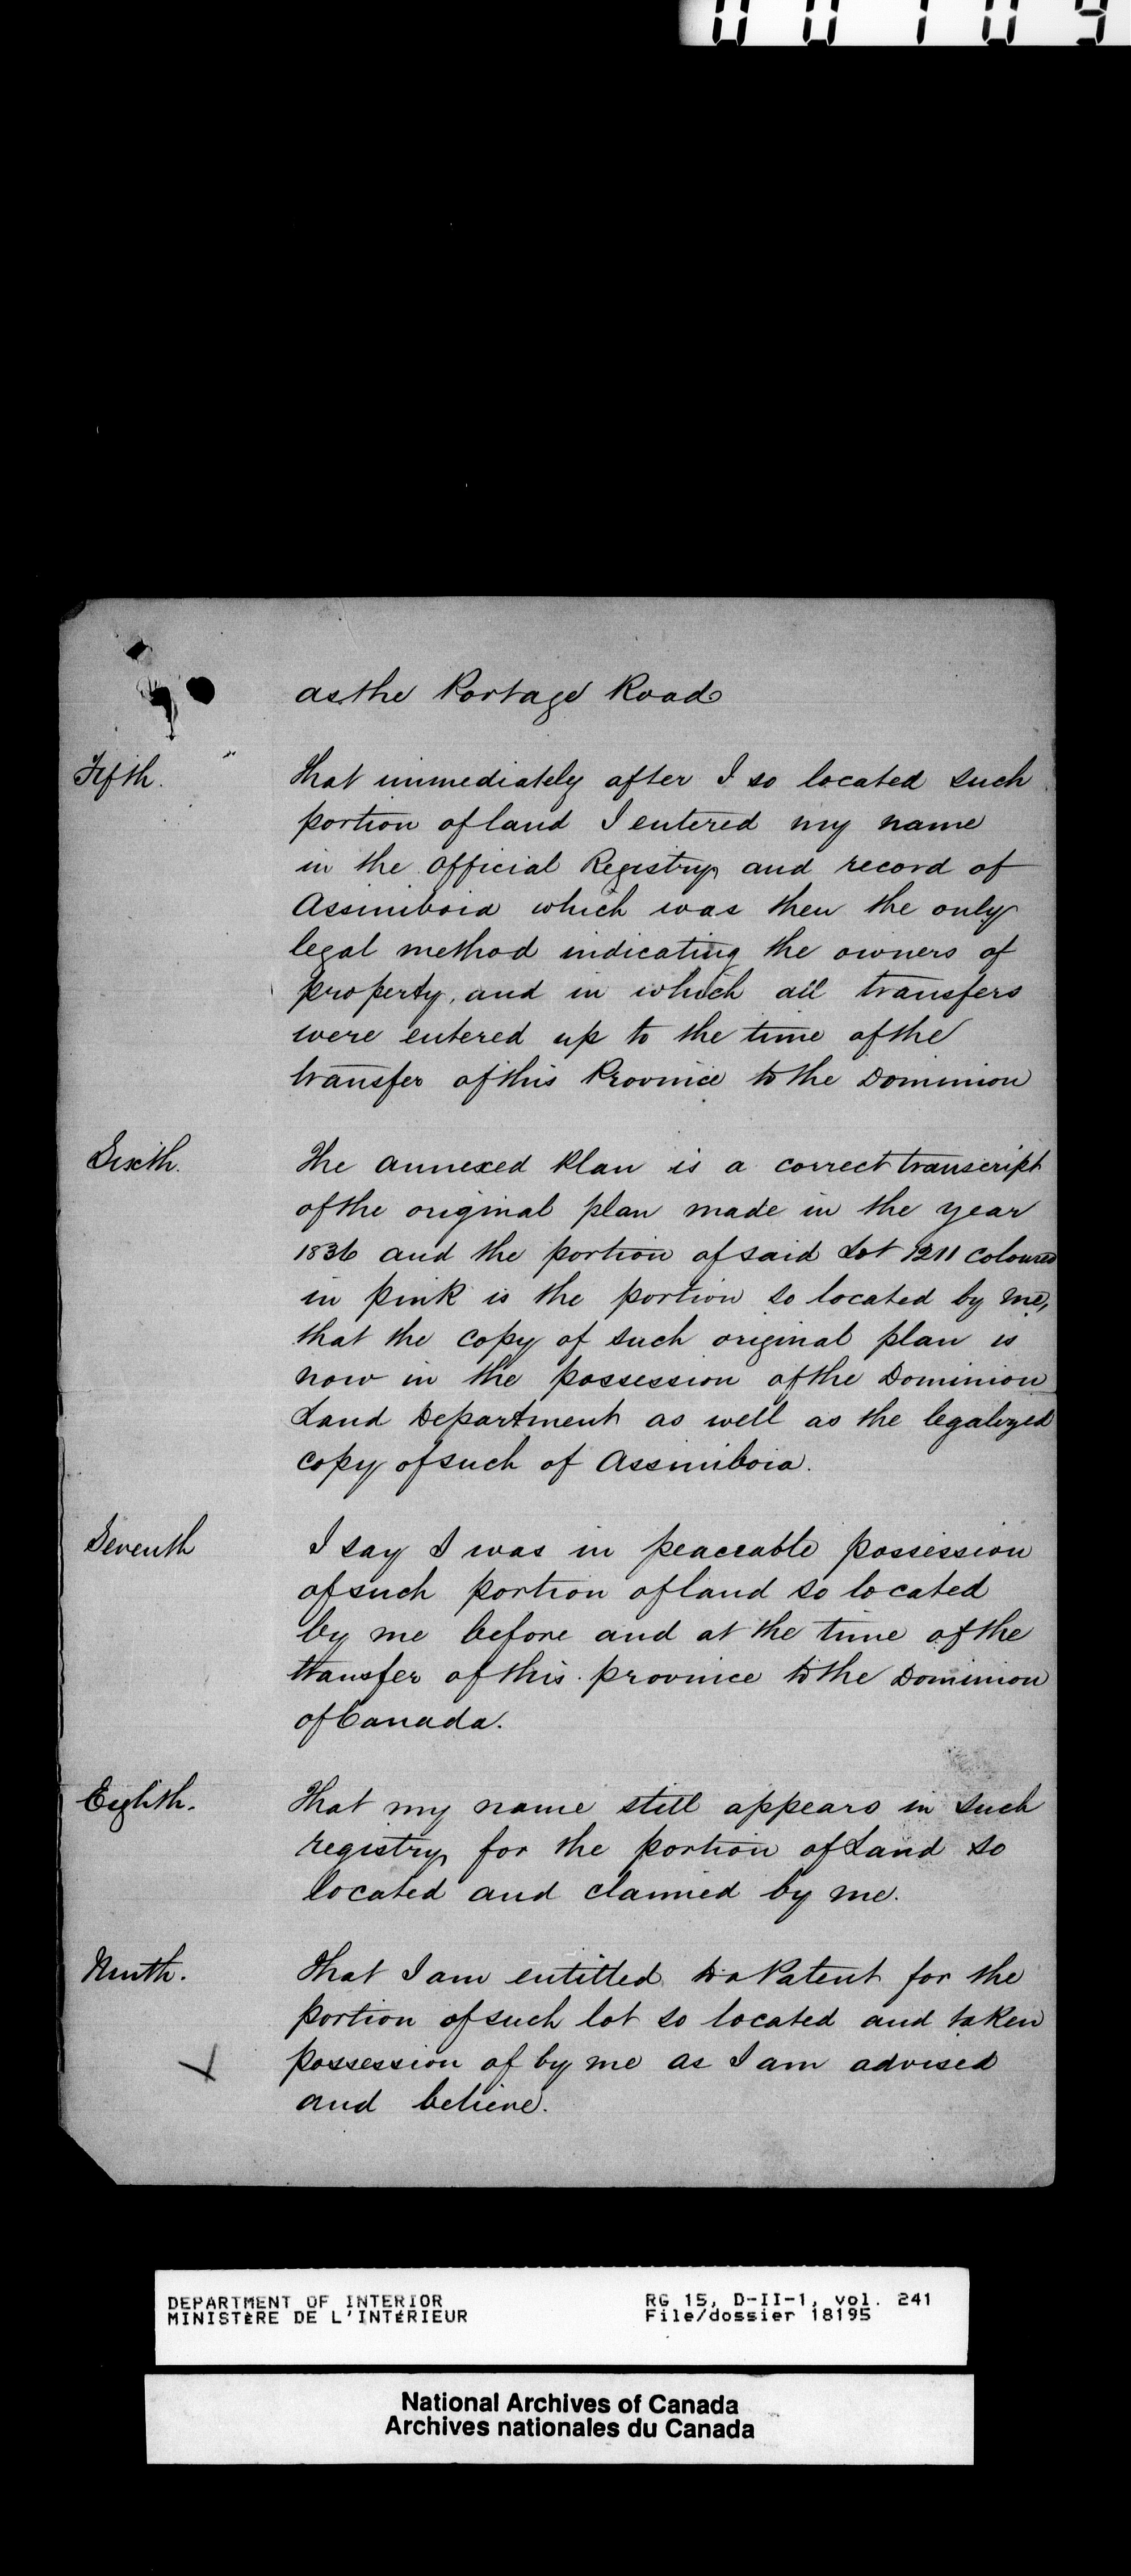 00109
as the Portage Road
Fifth. That immediately after I so located such
portion of land I entered my name
in the official Registry and record of
Assiniboia which was then the only
legal method indicating the owners of
property, and in which all transfers
were entered up to the time of the
transfer of this Province to the Dominion
Sixth. The annexed Plan is a correct transcript
of the original plan made in the year
1836 and the portion of said Lot 1211 coloured
in pink is the portion so located by me,
that the copy of such original plan is
now in the possession of the Dominion
Land Department as well as the legalized
copy of such of Assiniboia.
Seventh I say I was in peaceable possession
of such portion of land so located
by me before and at the time of the
transfer of this province to the Dominion
of Canada.
Eighth. That my name still appears in such
registry for the portion of Land so
located and claimed by me.
Ninth. That I am entitled to a Patent for the
portion of such lot so located and taken
possession of by me as I am advised
and believe.
DEPARTMENT OF INTERIOR RG 15, D-II-1, vol. 241
MINISTÈRE DE L'INTÉRIEUR File/dossier 18195
National Archives of Canada
Archives nationales du Canada